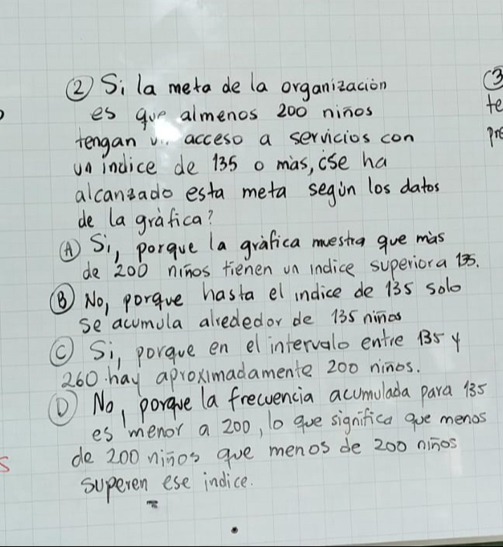 ② Si la meta de la organización
es que almenos 200 niños
tengan un acceso a servicios con
un indice de 135 o màs, ¿se ha
alcanzado esta meta según los datos
de la gràfica?
Ⓐ Si, porque la gràfica muestra que màs
de 200 niños tienen un indice superior a 135.
Ⓑ No, porque hasta el indice de 135 solo
se acumula alrededor de 135 niños
Ⓒ Si, porque en el intervalo entre 135 y
260 hay aproximadamente 200 niños.
Ⓓ No, porque la frecuencia acumulada para 135
es menor a 200, lo que significa que menos
de 200 niños que menos de 200 niños
superen ese indice.
③
te
pre
s